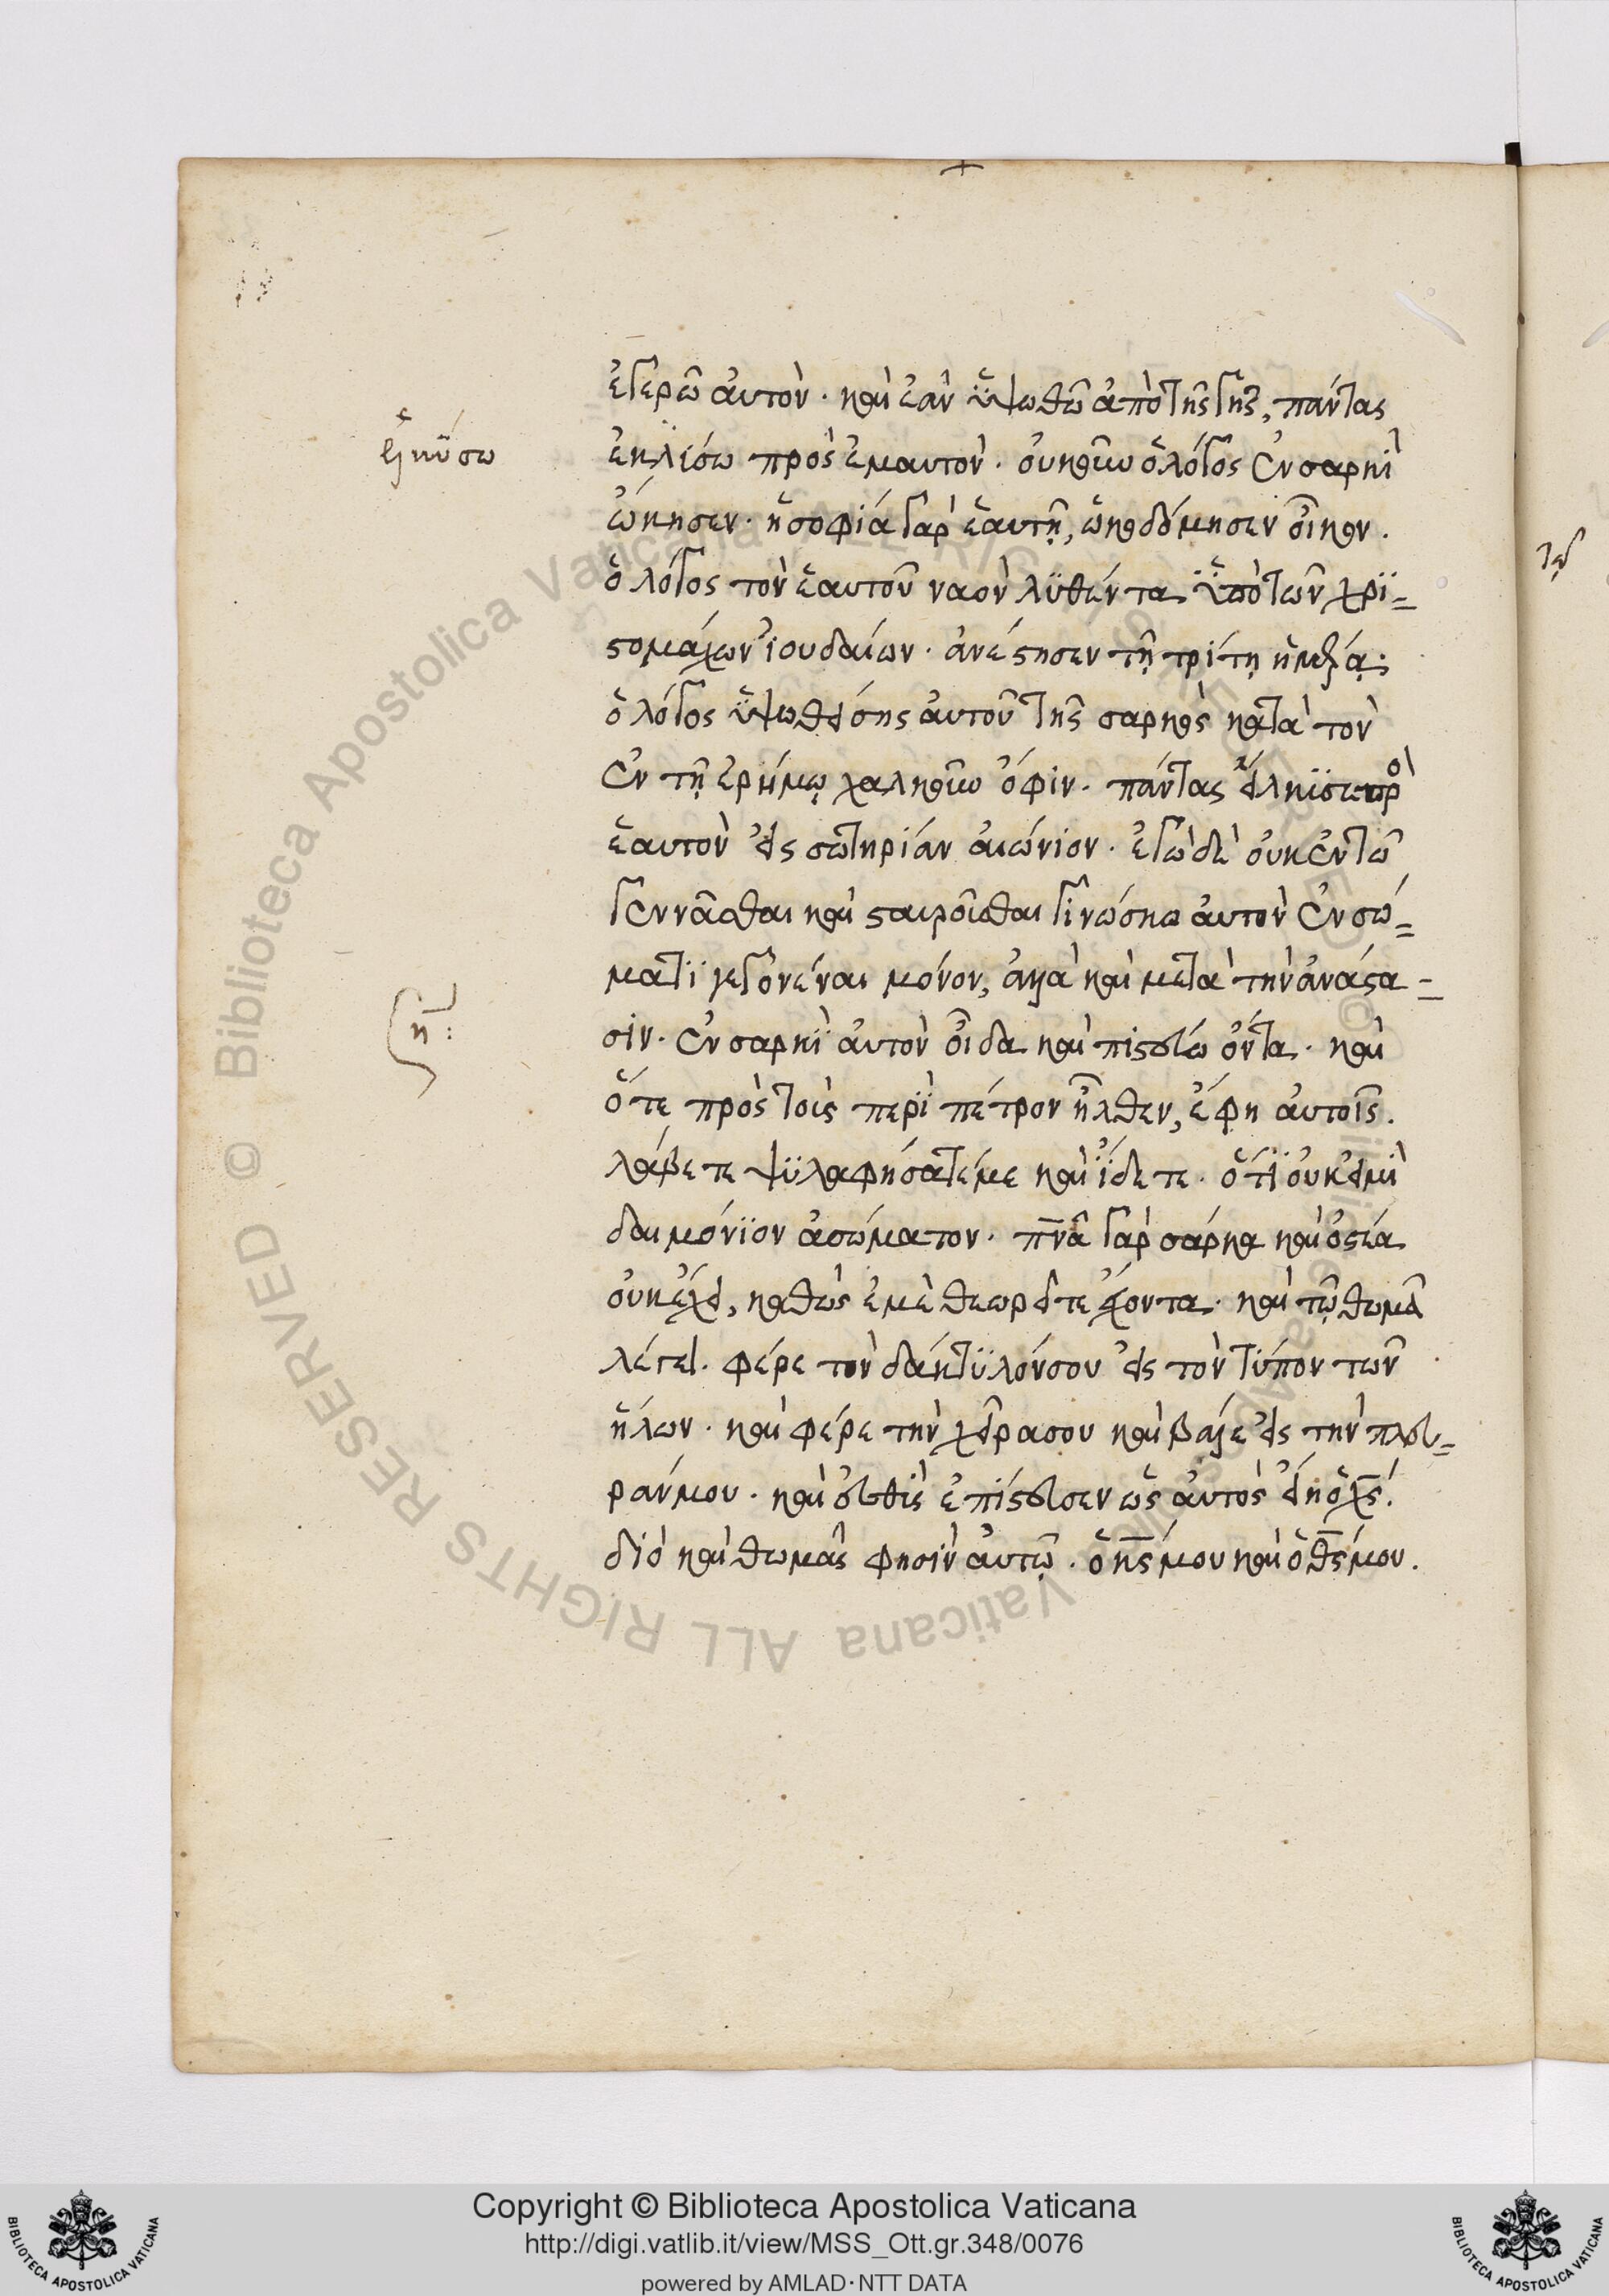 ἐγερῶ ἀυτὸν. καὶ ἐὰν ὑψωθῶ ἀπὸ τῆς γῆς, πάντας
ἑλκύσω
ἑκλίσω πρὸς ἐμαυτὸν. οὐκοῦν ὁ λόγος ἐν σαρκὶ
ὤκησεν. ἡ σοφία γὰρ ἑαυτῇ, ὠκοδόμησεν οἶκον.
ὁ λόγος τὸν ἑαυτοῦ ναὸν λυθέντα ὑπὸ τῶν χρι=
στομάχων ἰουδαίων. ἀνέστησεν τῇ τρίτῃ ἡμέρᾳ.
ὁ λόγος ὑψωθείσης ἀυτοῦ τῆς σαρκὸς κατὰ τὸν
ἐν τῇ ἐρήμῳ χαλκοῦν ὄφιν. πάντας εἵλκισε πρὸ
ἑαυτὸν εἰς σωτηρίαν αἰώνιον. ἐγὼ δὲ οὐκ ἐν τῶ
γεννᾶσθαι καὶ σταυροῦσθαι γινώσκω ἀυτὸν ἐν σώ=
ματι γεγονέναι μόνον, ἀλλὰ καὶ μετὰ τὴν ἀνάστα=
η:
σιν. ἐν σαρκὶ ἀυτὸν οἶδα καὶ πιστεύω ὄντα. καὶ
ὅτε πρὸς τοὺς περὶ πέτρον ἦλθεν, ἔφη ἀυτοῖς.
λάβετε ψυλαφήσατέ με καὶ ἴδετε. ὅτι οὐκ εἰμὶ
δαιμόνιον ἀσώματον. πνᾶ γὰρ σάρκα καὶ ὀστέα
οὐκ ἔχει, καθὼς ἐμὲ θεωρεῖτε ἔχοντα. καὶ τῷ θωμᾶ
λέγει. φέρε τὸν δάκτυλόν σου εἰς τὸν τύπον τῶν
ἥλων. καὶ φέρε τὴν χεῖρα σου καὶ βάλε εἰς τὴν πλευ=
ράν μου. καὶ εὐθὺς ἐπίστευσεν ὡς ἀυτὸς εἴη ὁ χς.
διὸ καὶ θωμᾶς φησὶν ἀυτῷ. ὁ κς μου καὶ ὁ θς μου.
Copyright © Biblioteca Apostolica Vaticana
http://digi.vatlib.it/view/MSS_Ott.gr.348/0076
powered by AMLAD·NTT DATA
BIBLIOTECA APOSTOLICA VATICANA
BIBLIOTECA APOSTOLICA VATICANA
Biblioteca Apostolica Vaticana ALL RIGHTS RESERVED ©